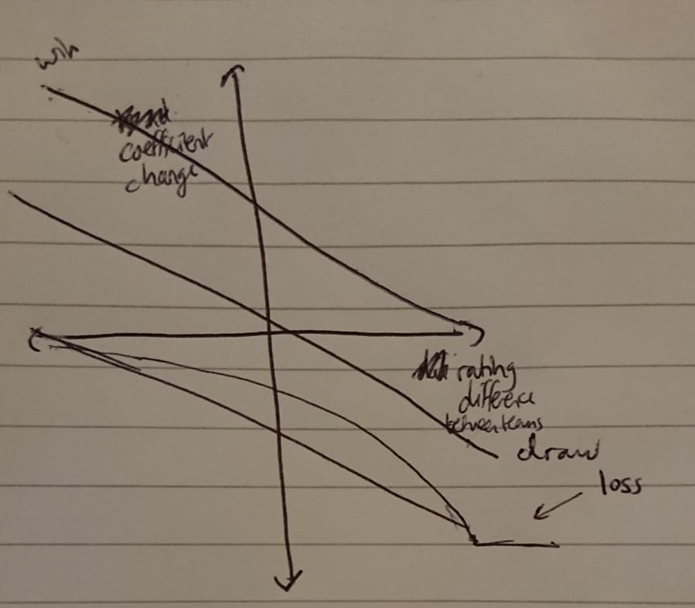 win
coefficient
change
rating
difference
between teams
draw
loss